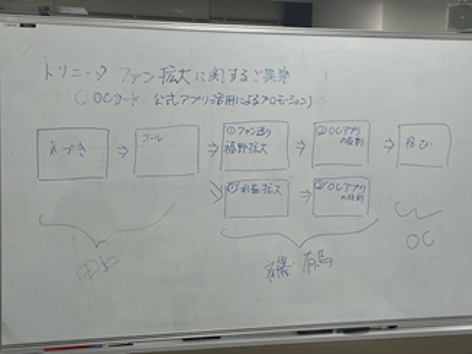 トリニータ ファン拡大に関するご提案
(OCカード 公式アプリ活用によるプロモーション)
気づき
⇒
ゴール
⇒
①ファン造り
裾野拡大
⇒
②OCアプリ
の役割
⇒
結び
①'利益拡大
→
②'OCアプリ
の役割
有馬
OC